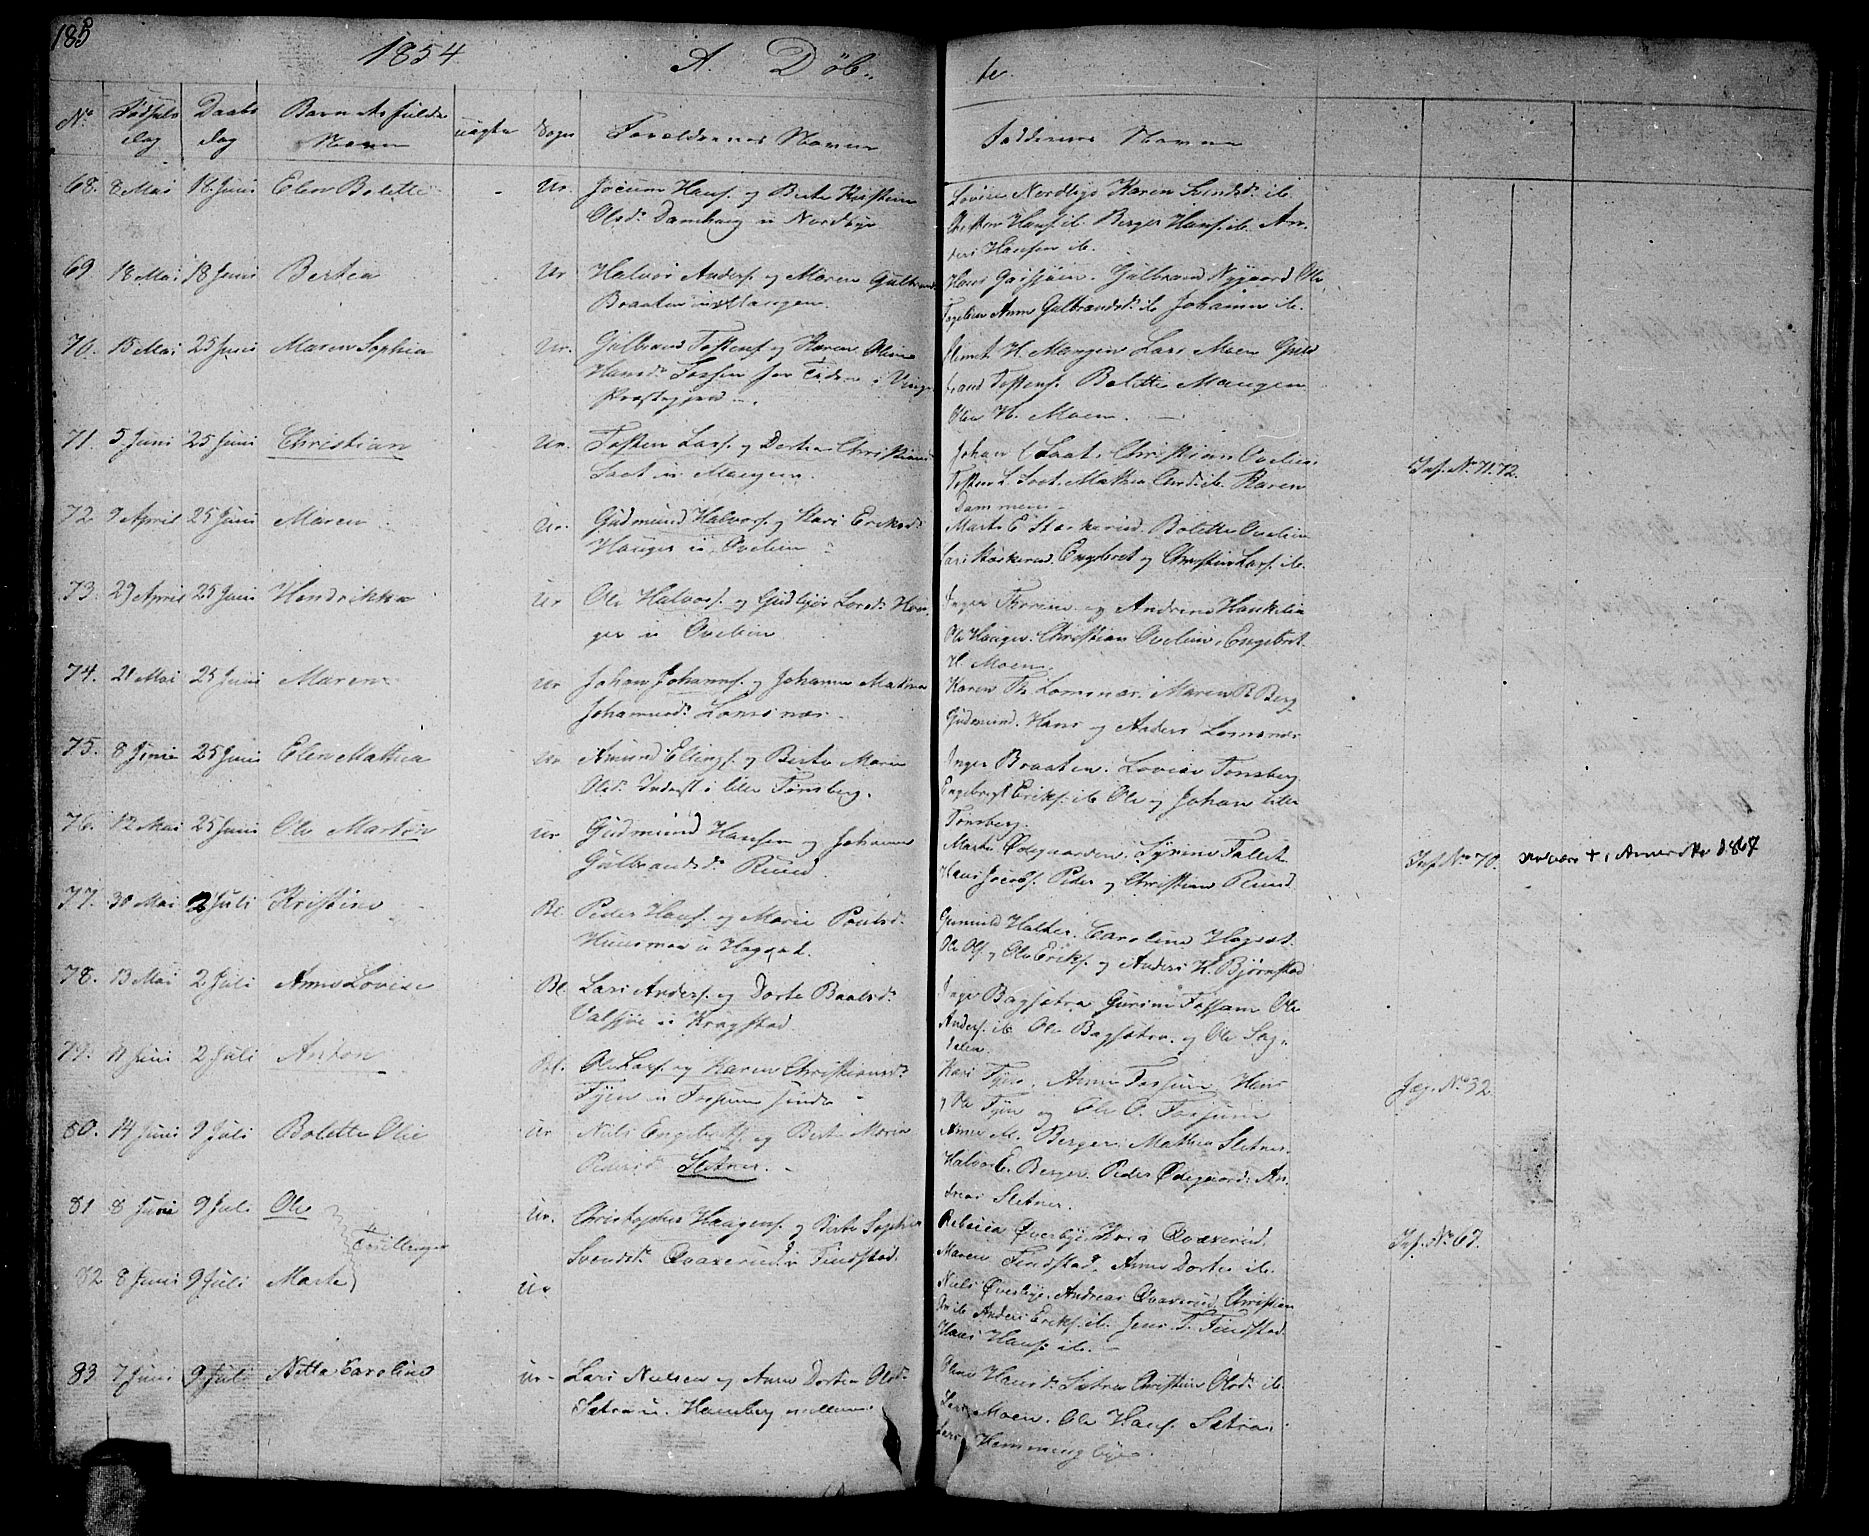 185
1854 A. Døb- te.
No Fødsels Daabs Barnets fulde uægte Sogn Forældrenes Navne Faddernes Navne
dag dag Navn
68. 8 Mai 18 Juni Elen Bolette - Ur. Jocum Hans. og Berte Kirstine
Olsd. Damhaug u Nordbye
Lovise Nordbye Karen Svendsd. ib.
Hans. ib. Berger Hans. ib. An-
ders Hansen ib.
69 18 Mai 18 Juni Bertea Ur Halvor Anders. og Maren Gulbrands
Braaten u Mangen.
Hans Gulbrand Nygaard Ole
Anne Gulbrandsd. ib. Johanne ib.
70. 15 Mai 25 Juni Maren Sophia Ur. Gulbrand Tostens. og Karen Oline
Hansd. Fossen i Vinger
Præstegjeld
H. Mangen Lars Moen Gul
brand Tostens. Bolette Mangen
Olea H. Moen.
71. 5 Juni 25 Juni Christian Ur. Tosten Lars. og Dorthea Christians
Saat u Mangen.
Johan Saat. Christian Ovelien
Tosten L. Saat. Mathea ib. Karen
Dammen
Inf. No 71.72.
72 9 April 25 Juni Maren Ur. Gudmund Halvors. og Kari Eriksd.
Hauger u Ovelien
Marte E Bolette Ovelien
Lars Engebret og Christian Lars. ib.
73. 29 April 25 Juni Hendrikke Ur Ole Halvors. og Gudbjør Larsd. Hau-
ger u Ovelien
Inger og Andrine Haukelia
Ole Hauger. Christian Ovelien. Engebret
H. Moen.
74. 21 Mai 25 Juni Maren Ur Johan Johanns. og Johanne Matea
Lomsnæs.
Karen Th. Lomsnæs. Maren R Berg
Gudmund. Hans og Anders Lomsnæs
75. 8 Juni 25 Juni Elen Mathea Ur Amund Ellings. og Berte Marie
Olsd. Inderst i lille Tønsberg.
Inger Braaten. Lovise Tønsberg
Engebregt Eriks. ib. Ole og Johan lille
Tønsberg.
76. 12 Mai 25 Juni Ole Martin Ur Gudmund Hansen og Johanne
Gulbrandsd. Ruud.
Marte Ødegaarden. Syrine Tallet
Hans Jacobs. Peder og Christian Ruud.
Inf. No 70. + i Amerika 1868
77. 30 Mai 2 Juli Kristine Bl. Peder Hans. og Marie Poulsd.
Huusmand u Hogset.
Gunuld Halder. Caroline Hogset.
Ole Ols. og Ole Eriks. og Anders H. Bjørnstad
78. 13 Mai 2 Juli Anne Lovise Bl. Lars Anders. og Dorte
Valsjøe u Krogstad
Inger Bagsøtra Gurine Fossum Ole
Anders. ib. Ole Bagsøtra. og Ole Sag-
dalen.
79. 11 Juni 2 Juli Anton Bl. Ole Lars. og Karen Christiansd.
Tyen u Fossum
Kari Tyen. Anne Fossum Hans
og Ole Tyen og Ole O. Fossum
Jæg. No 32
80. 14 Juni 9 Juli Bolette Olie Ur Niels Engebrets. og Berte Maria
Pedersd. Sletner.
Anne M. Berger. Mathea Sletner.
Halvor E. Berger. Peder Ødegaard. An-
dreas Sletner.
81 8 Juni 9 Juli Ole Ur. Christopher Haagens. og Berte Sophie
Svendsd. Qvaserud u Findstad.
Tvillinger
Rebecca Øverbye. Qvaserud.
Maren Findstad. Anne Dorte ib.
Inf. No 67.
82 8 Juni 9 Juli Marte Ur
Niels Øverbye. Andreas Qvaserud Christian
ib. Anders Eriks. ib. Jens T. Findstad
Hans Hans. ib.
83 7 Juni 9 Juli Netta Caroline Ur Lars Nielsen og Anne Dorthea Olsd.
Sætra u. Hemberg mellem
Hansd. Sætra Christine Olsd. ib.
Lars Moen. Ole Hans. Sætra.
Lars Hemmingbye.